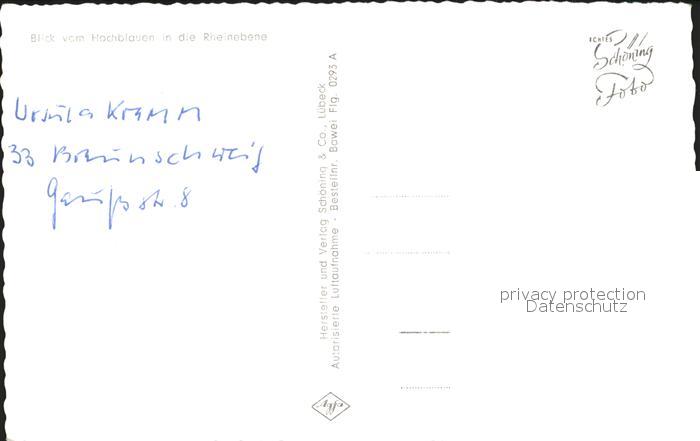 Blick vom Hochblauen in die Rheinebene
Ursula Kramm
33 Braunschweig
Gaußstr. 8
Hersteller und Verlag Schöning & Co., Lübeck
Autorisierte Luftaufnahme - Bestellnr. Bawei Flg. 0293 A
ECHTES
Schöning
Foto
privacy protection
Datenschutz
Agfa